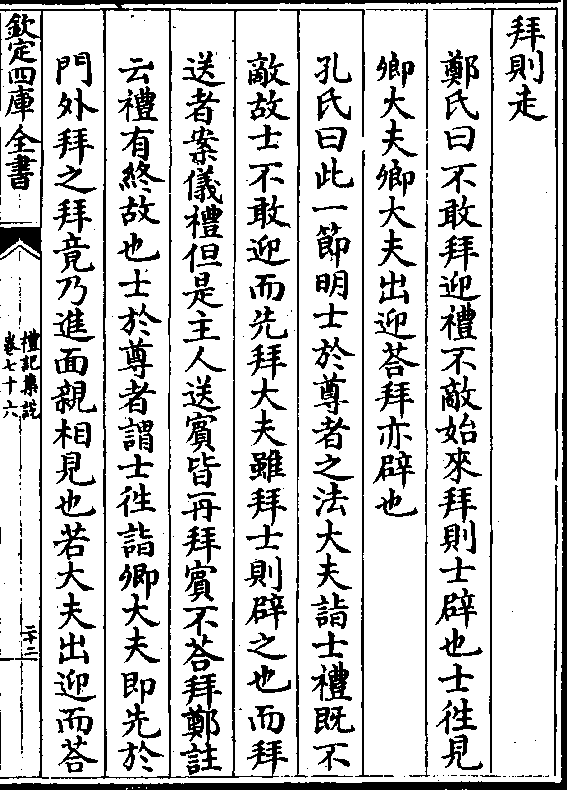 拜則走
鄭氏曰不敢拜迎禮不敵始來拜則士辟也士徃見
卿大夫卿大夫出迎荅拜亦辟也
孔氏曰此一節明士於尊者之法大夫詣士禮既不
敵故士不敢迎而先拜大夫雖拜士則辟之也而拜
送者案儀禮但是主人送賓皆再拜賓不荅拜鄭註
云禮有終故也士於尊者謂士徃詣卿大夫即先於
門外拜之拜竟乃進面親相見也若大夫出迎而荅
欽定四庫全書
禮記集說
卷七十六
二十二